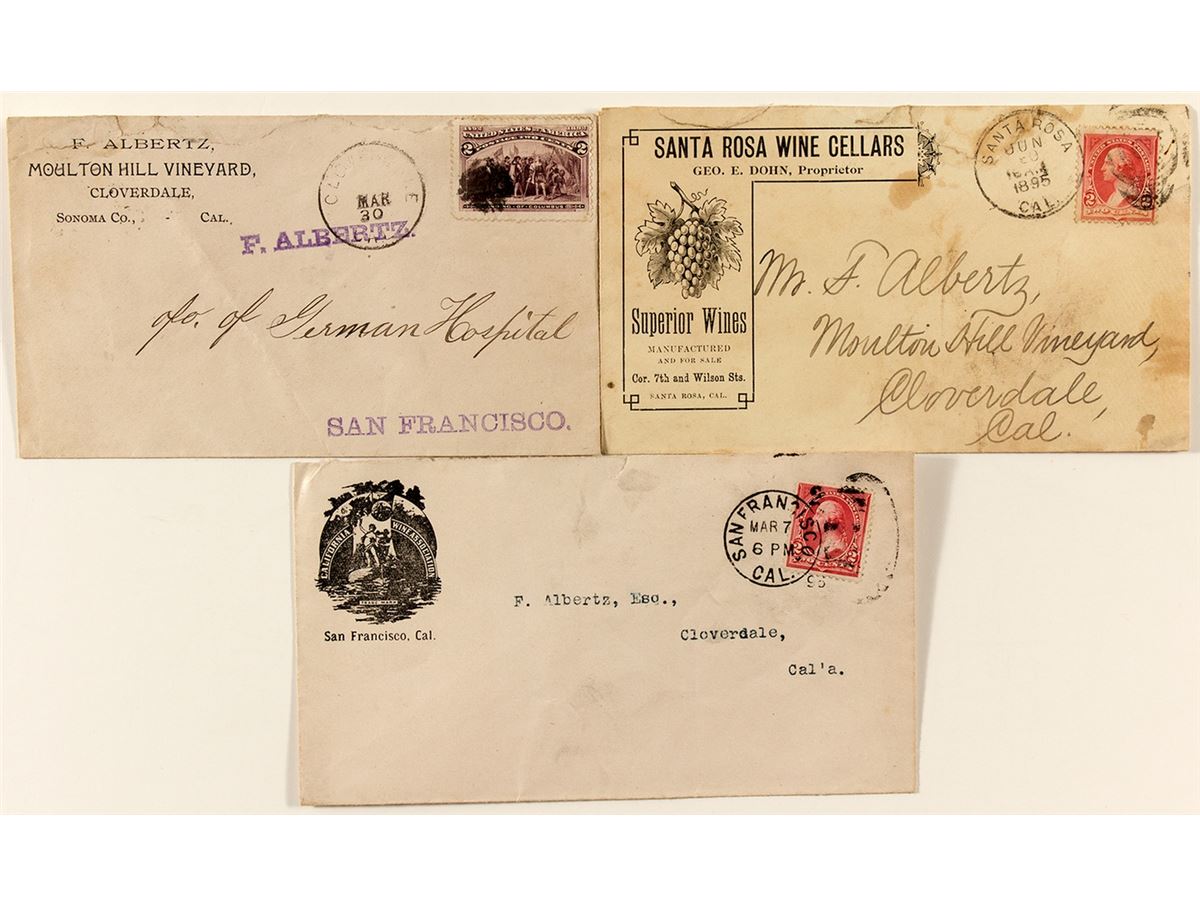 F. ALBERTZ,
MOULTON HILL VINEYARD,
CLOVERDALE,
SONOMA CO., CAL.
MAR
30
1492 1892
UNITED STATES OF AMERICA
2 2
OF COLUMBUS
F. ALBERTZ.
c/o. of German Hospital
SAN FRANCISCO.
SANTA ROSA WINE CELLARS
GEO. E. DOHN, Proprietor
Superior Wines
MANUFACTURED
AND FOR SALE
Cor. 7th and Wilson Sts.
SANTA ROSA, CAL.
SANTA ROSA
JUN
1895
CAL.
2 TWO CENTS
Mr. F. Albertz,
Moulton Hill Vineyard,
Cloverdale,
Cal.
CALIFORNIA WINE ASSOCIATION
TRADE MARK
San Francisco, Cal.
SAN FRANCISCO
MAR 7
6 PM
CAL.
F. Albertz, Esq.,
Cloverdale,
Cal'a.